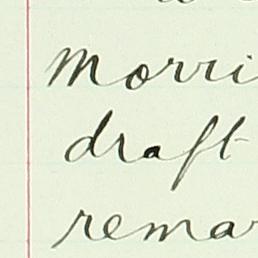 Morri
draft
remar